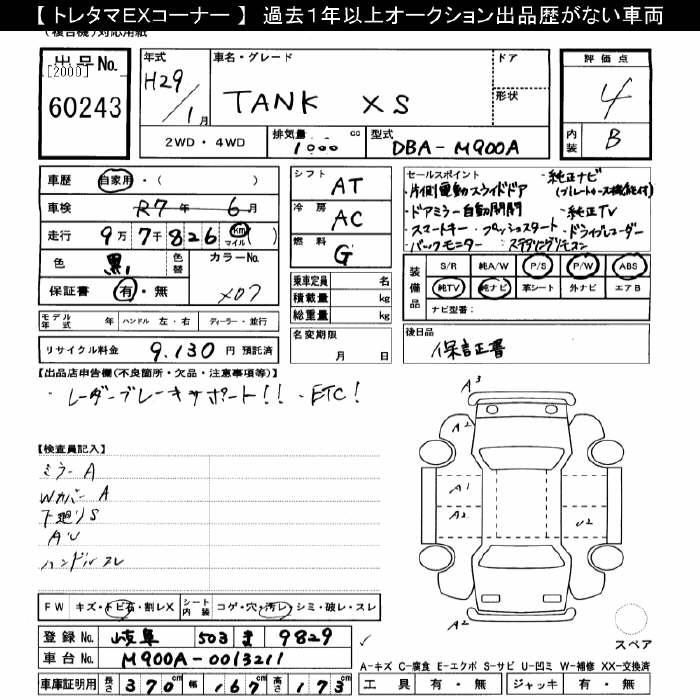 【 トレタマEXコーナー 】 過去1年以上オークション出品歴がない車両
(複合機)対応用紙
出品No.
[2000]
60243
年式
H29/1月
車名・グレード
TANK XS
ドア
形状
評価点
4
内装
B
2WD・4WD
排気量 1000 cc
型式 DBA-M900A
車歴 自家用・( )
車検 R7年 6月
走行 9万7千826 km マイル ( )
色 黒
色替
カラーNo.
X07
保証書 有・無
モデル年式 年 ハンドル 左・右 ディーラー・並行
リサイクル料金 9.130 円 預託済
シフト AT
冷房 AC
燃料 G
乗車定員 名
積載量 kg
総重量 kg
名変期限
月 日
セールスポイント
・片側電動スライドドア
・純正ナビ
・ドアミラー自動開閉
・純正TV
・スマートキー プッシュスタート
・ドライブレコーダー
・バックモニター
・ステアリングリモコン
装備品
S/R 純A/W P/S P/W ABS
純TV 純ナビ 革シート 外ナビ エアB
ナビ型番:
後日品
保証書
【出品店申告欄(不良箇所・欠品・注意事項等)】
・レーダーブレーキサポート!! ・ETC!
【検査員記入】
ミラーA
WカバーA
下廻りS
AU
ハンドルスレ
A3
A2
A1
A2
U2
A2
スペア
FW キズ・トビ石・割レX
シート内装 コゲ・穴・汚レ・シミ・破レ・スレ
登録No. 岐阜 503 ま 9829
車台No. M900A-0013211
車庫証明用 長さ 370 cm 幅 167 cm 高さ 173 cm
A-キズ C-腐食 E-エクボ S-サビ U-凹ミ W-補修 XX-交換済
工具 有・無 ジャッキ 有・無